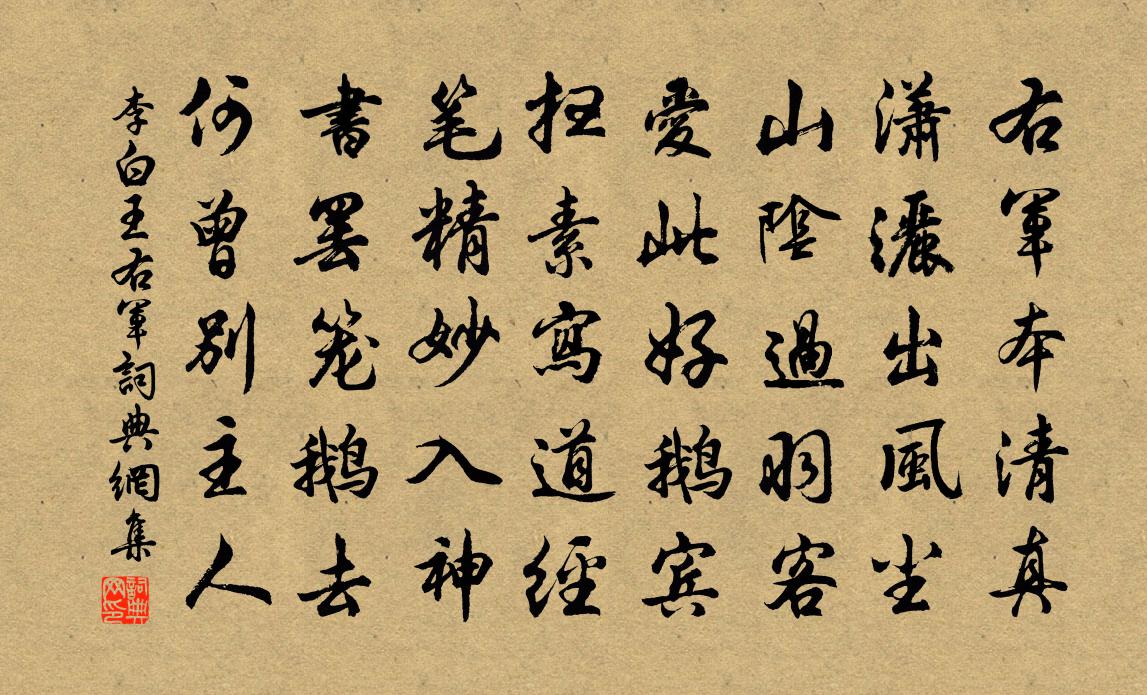 右軍本清真
瀟灑出風尘
山陰過羽客
愛此好鵝宾
扫素寫道經
笔精妙入神
書罢笼鵝去
何曾别主人
李白王右軍詞典網集
詞典网印